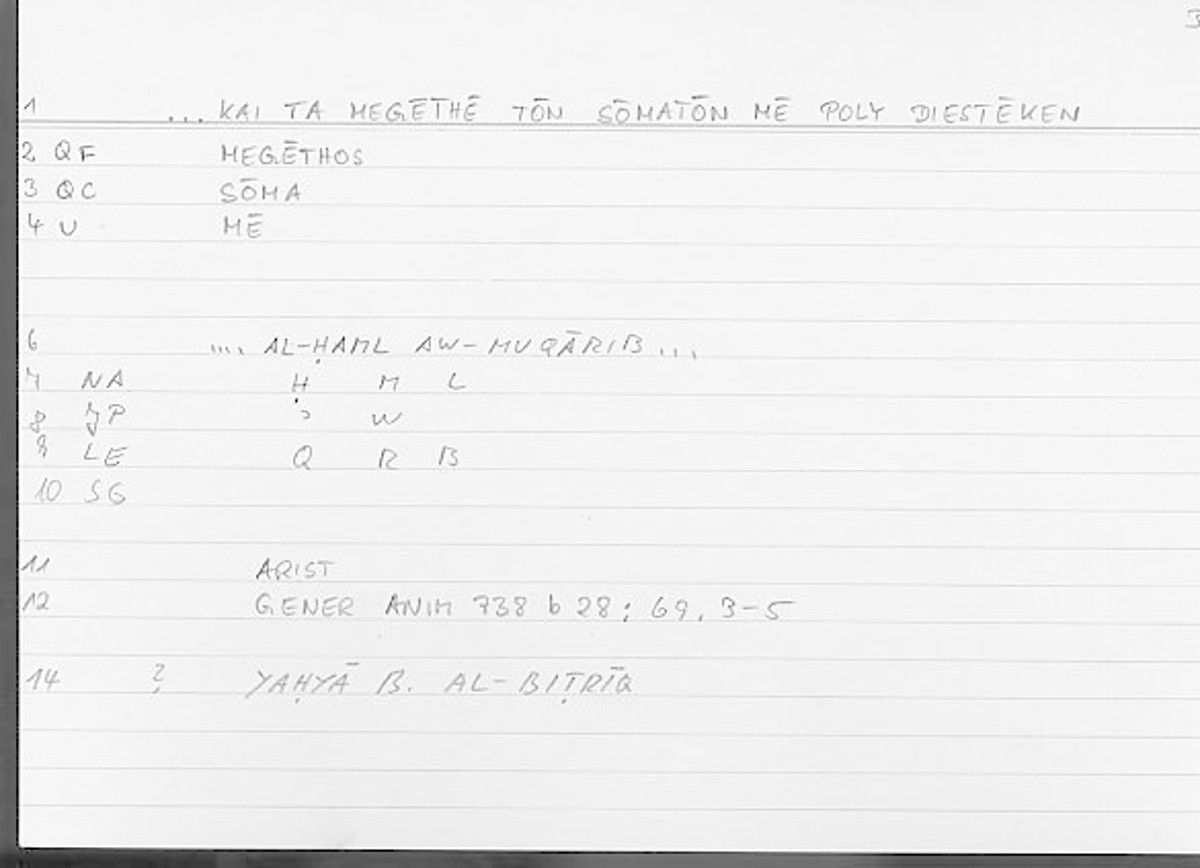 3
1 ... KAI TA MEGĒTHĒ TŌN SŌMATŌN MĒ POLY DIESTĒKEN
2 QF MEGĒTHOS
3 QC SŌMA
4 U MĒ
6 .... AL-ḤAML AW-MUQĀRIB ...
7 NA Ḥ M L
8 JP ʾ W
9 LE Q R B
10 SG
11 ARIST
12 GENER ANIM 738 b 28; 69, 3-5
14 ? YAḤYĀ B. AL-BIṬRĪQ